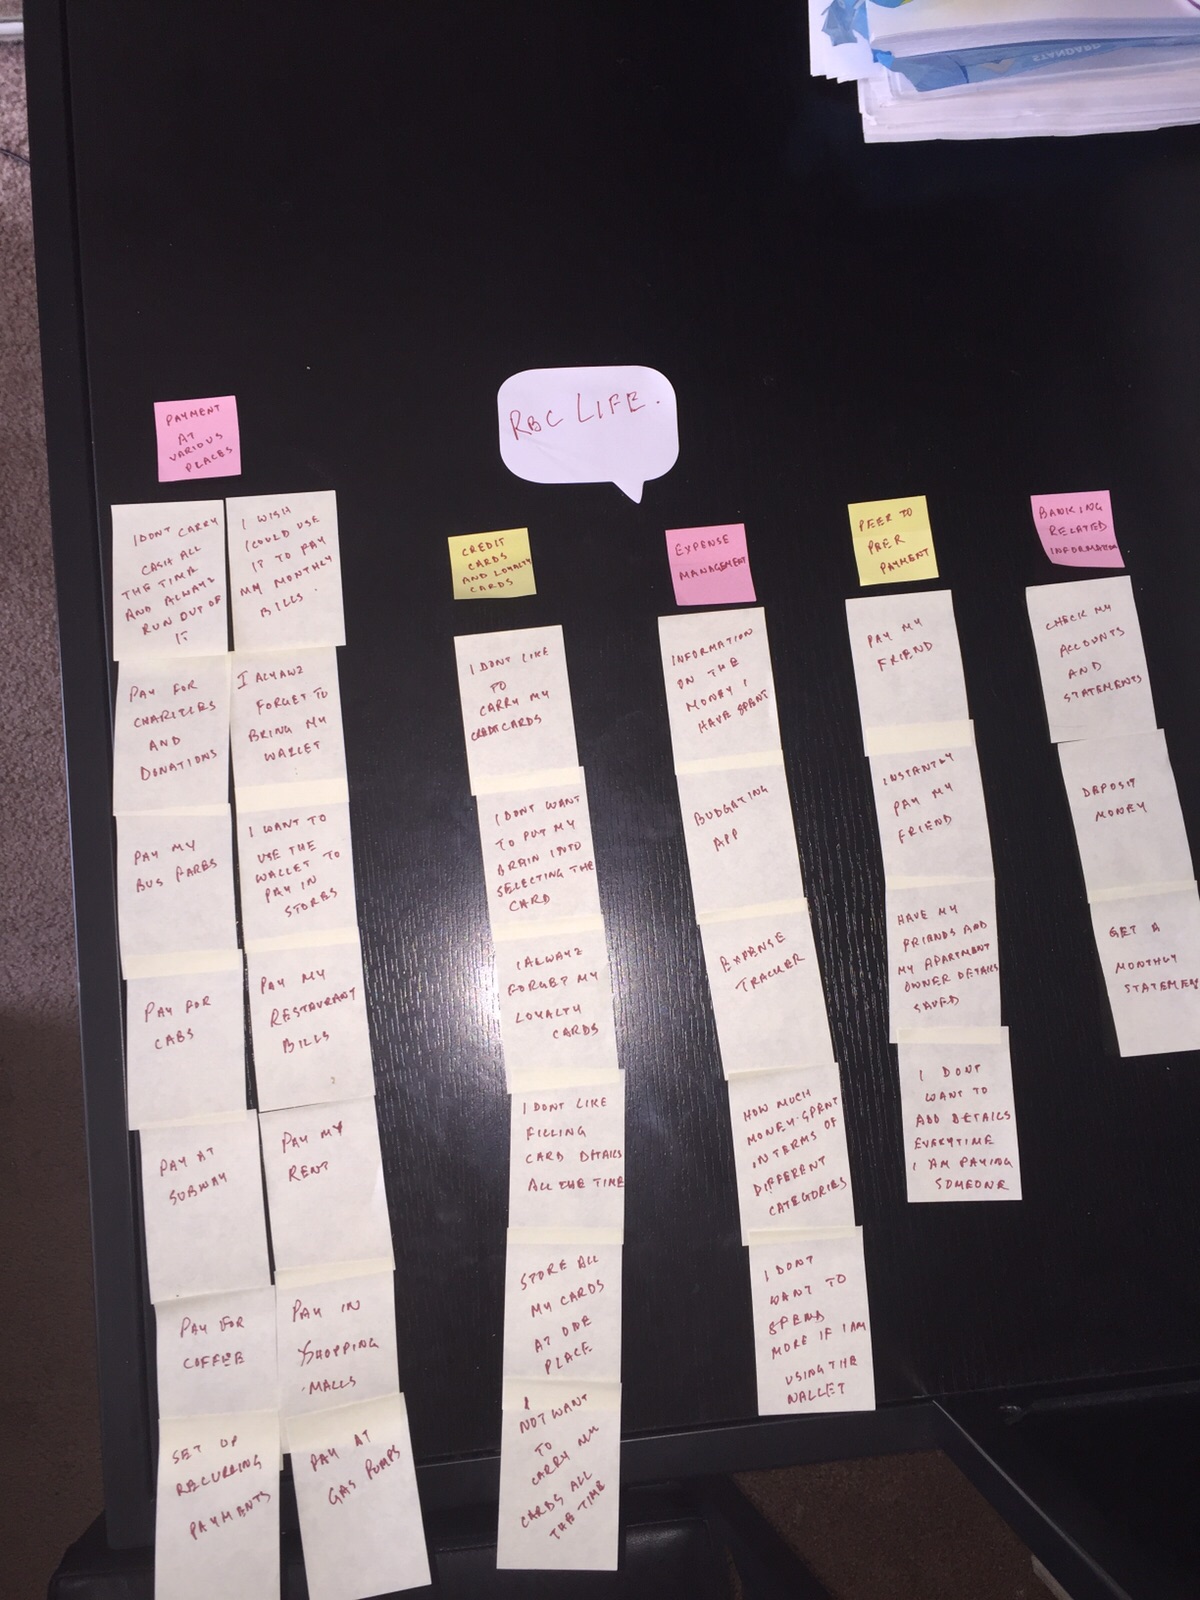 STANDARD
RBC LIFE.
PAYMENT
AT
VARIOUS
PLACES
I DONT CARRY
CASH ALL
THE TIME
AND ALWAYZ
RUN OUT OF
IT
PAY FOR
CHARITIES
AND
DONATIONS
PAY MY
BUS FARES
PAY FOR
CABS
PAY AT
SUBWAY
PAY FOR
COFFEE
SET UP
RECURRING
PAYMENTS
I WISH
I COULD USE
IT TO PAY
MY MONTHLY
BILLS.
I ALYAWZ
FORGET TO
BRING MY
WALLET
I WANT TO
USE THE
WALLET TO
PAY IN
STORES
PAY MY
RESTAURANT
BILLS
PAY MY
RENT
PAY IN
SHOPPING
MALLS
PAY AT
GAS PUMPS
CREDIT
CARDS
AND LOYALTY
CARDS
I DONT LIKE
TO
CARRY MY
CREDITCARDS
I DONT WANT
TO PUT MY
BRAIN INTO
SELECTING THE
CARD
I ALWAYZ
FORGET MY
LOYALTY
CARDS
I DONT LIKE
FILLING
CARD DETAILS
ALL THE TIME
STORE ALL
MY CARDS
AT ONE
PLACE
I
NOT WANT
TO
CARRY MY
CARDS ALL
THE TIME
EXPENSE
MANAGEMENT
INFORMATION
ON THE
MONEY I
HAVE SPENT
BUDGETING
APP
EXPENSE
TRACKER
HOW MUCH
MONEY SPENT
IN TERMS OF
DIFFERENT
CATEGORIES
I DONT
WANT TO
SPEND
MORE IF I AM
USING THE
WALLET
PEER TO
PEER
PAYMENT
PAY MY
FRIEND
INSTANTLY
PAY MY
FRIEND
HAVE MY
FRIENDS AND
MY APARTMENT
OWNER DETAILS
SAVED
I DONT
WANT TO
ADD DETAILS
EVERYTIME
I AM PAYING
SOMEONE
BANKING
RELATED
INFORMATION
CHECK MY
ACCOUNTS
AND
STATEMENTS
DEPOSIT
MONEY
GET A
MONTHLY
STATEMEN